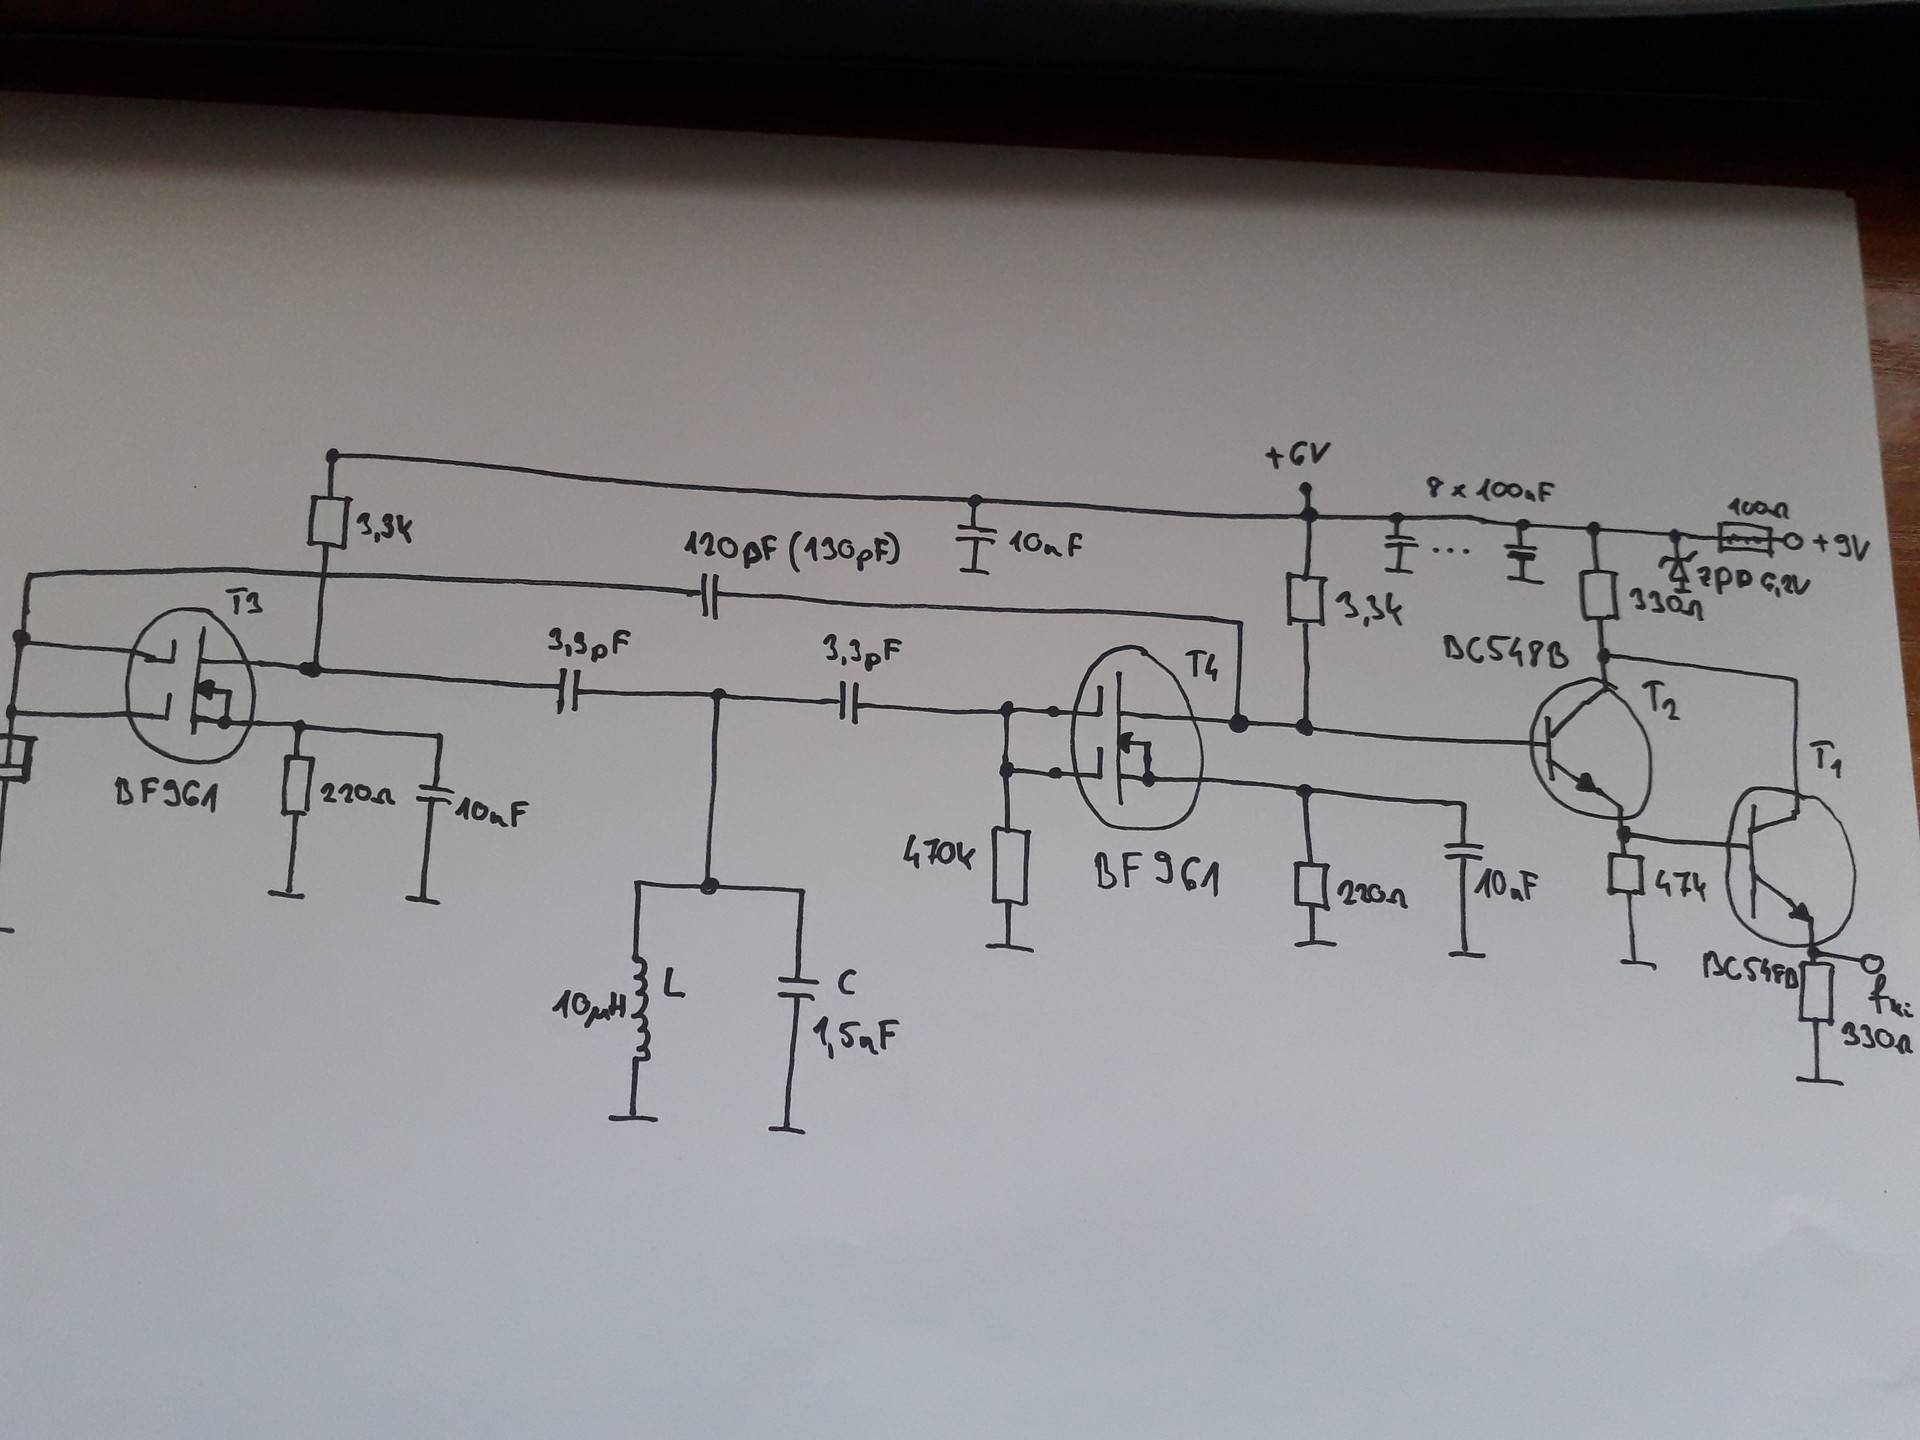 +6V
8 x 100nF
100Ω
+9V
3,3k
120pF (130pF)
10nF
ZPD 6,2V
T3
3,3k
330Ω
3,3pF
3,3pF
T4
BC548B
T2
T1
BF961
220Ω
10nF
470k
BF961
220Ω
10nF
47k
BC548B
10µH
L
C
1,5nF
330Ω